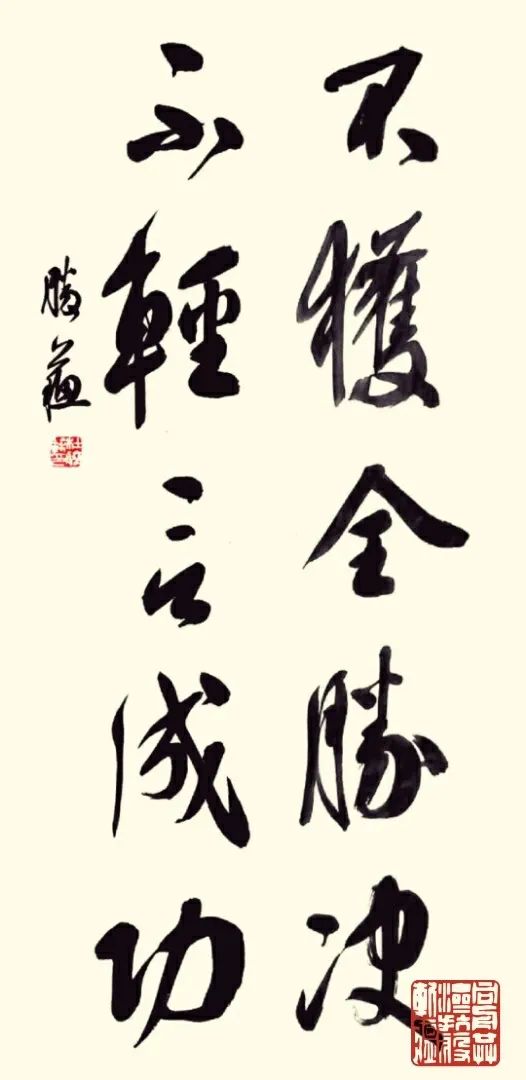 不獲全勝决
不輕言成功
勝蘊